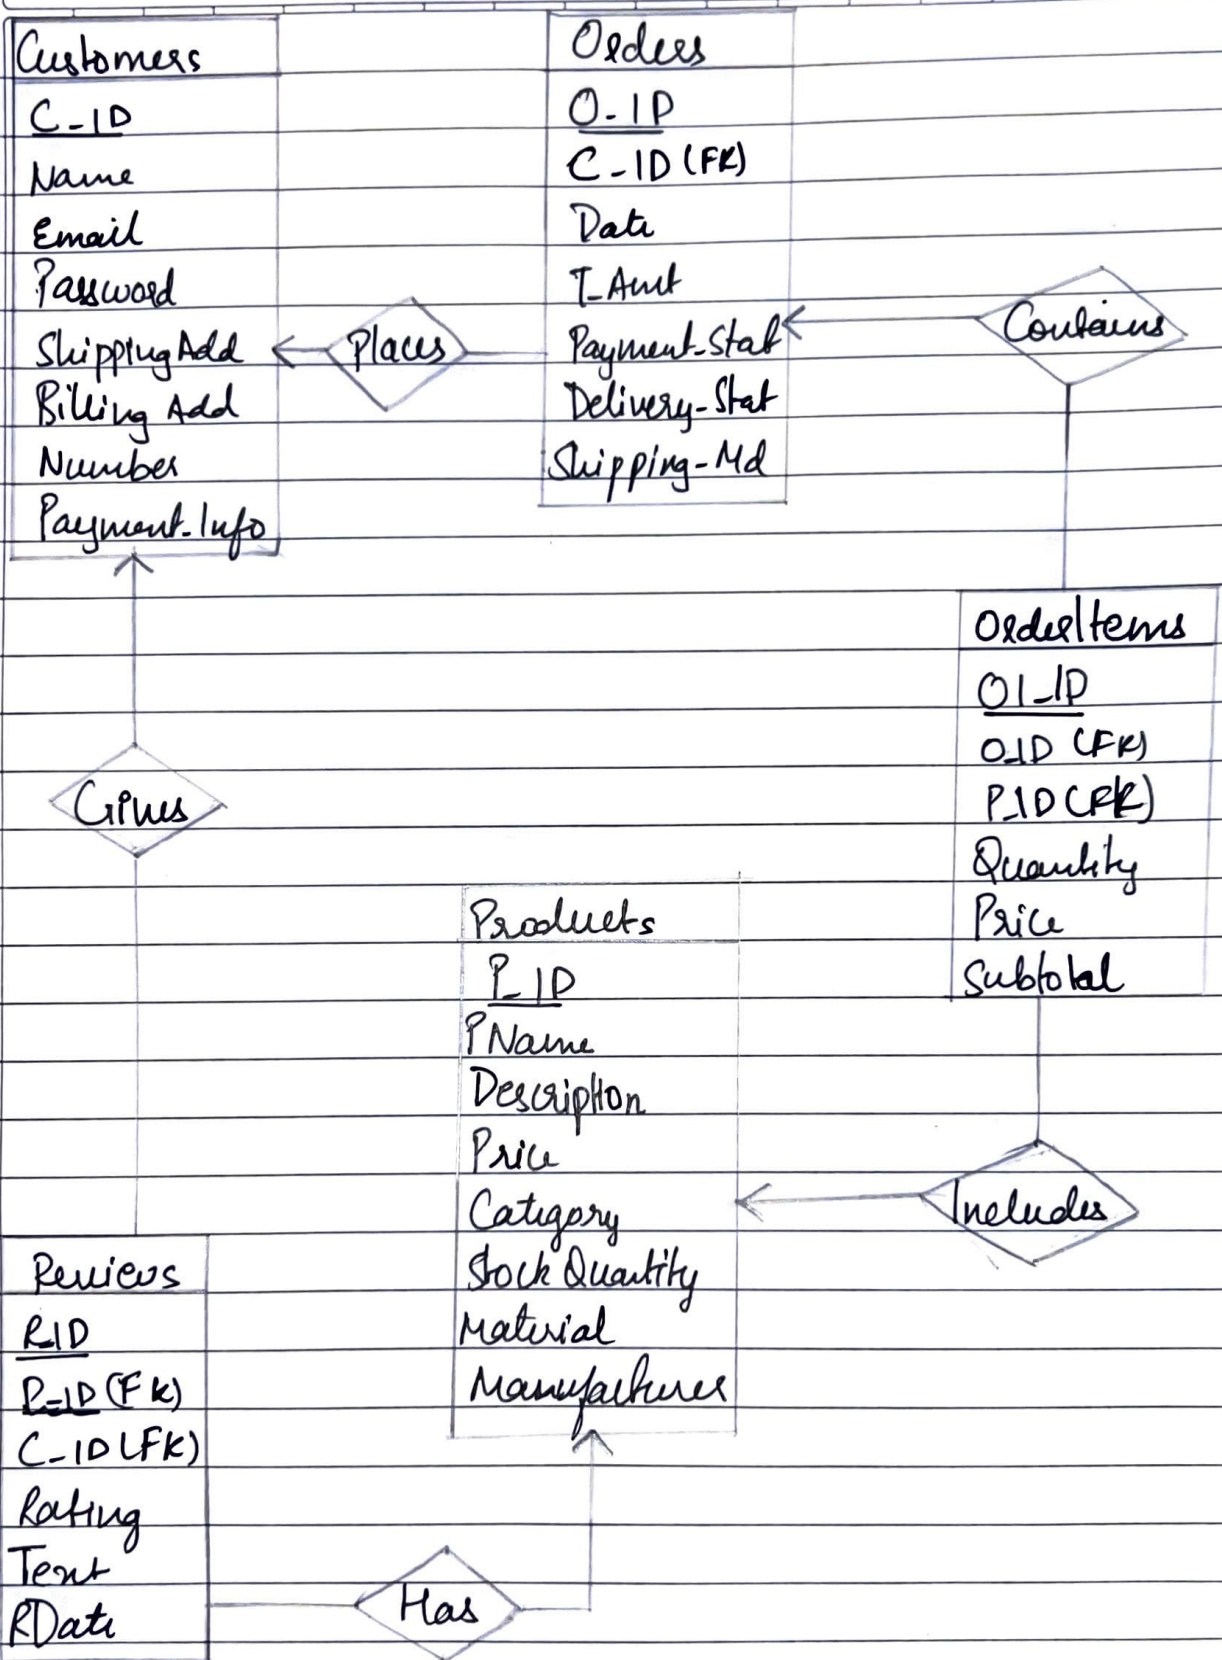 Customers
C_ID
Name
Email
Password
ShippingAdd
Billing Add
Number
Payment_Info
Places
Orders
O_ID
C_ID (FK)
Date
T_Amt
Payment_Stat
Delivery_Stat
Shipping_Md
Contains
OrderItems
OI_ID
O_ID (FK)
P_ID (FK)
Quantity
Price
Subtotal
Gives
Products
P_ID
PName
Description
Price
Category
Stock Quantity
Material
Manufacturer
Includes
Reviews
R_ID
P_ID (FK)
C_ID (FK)
Rating
Text
RDate
Has